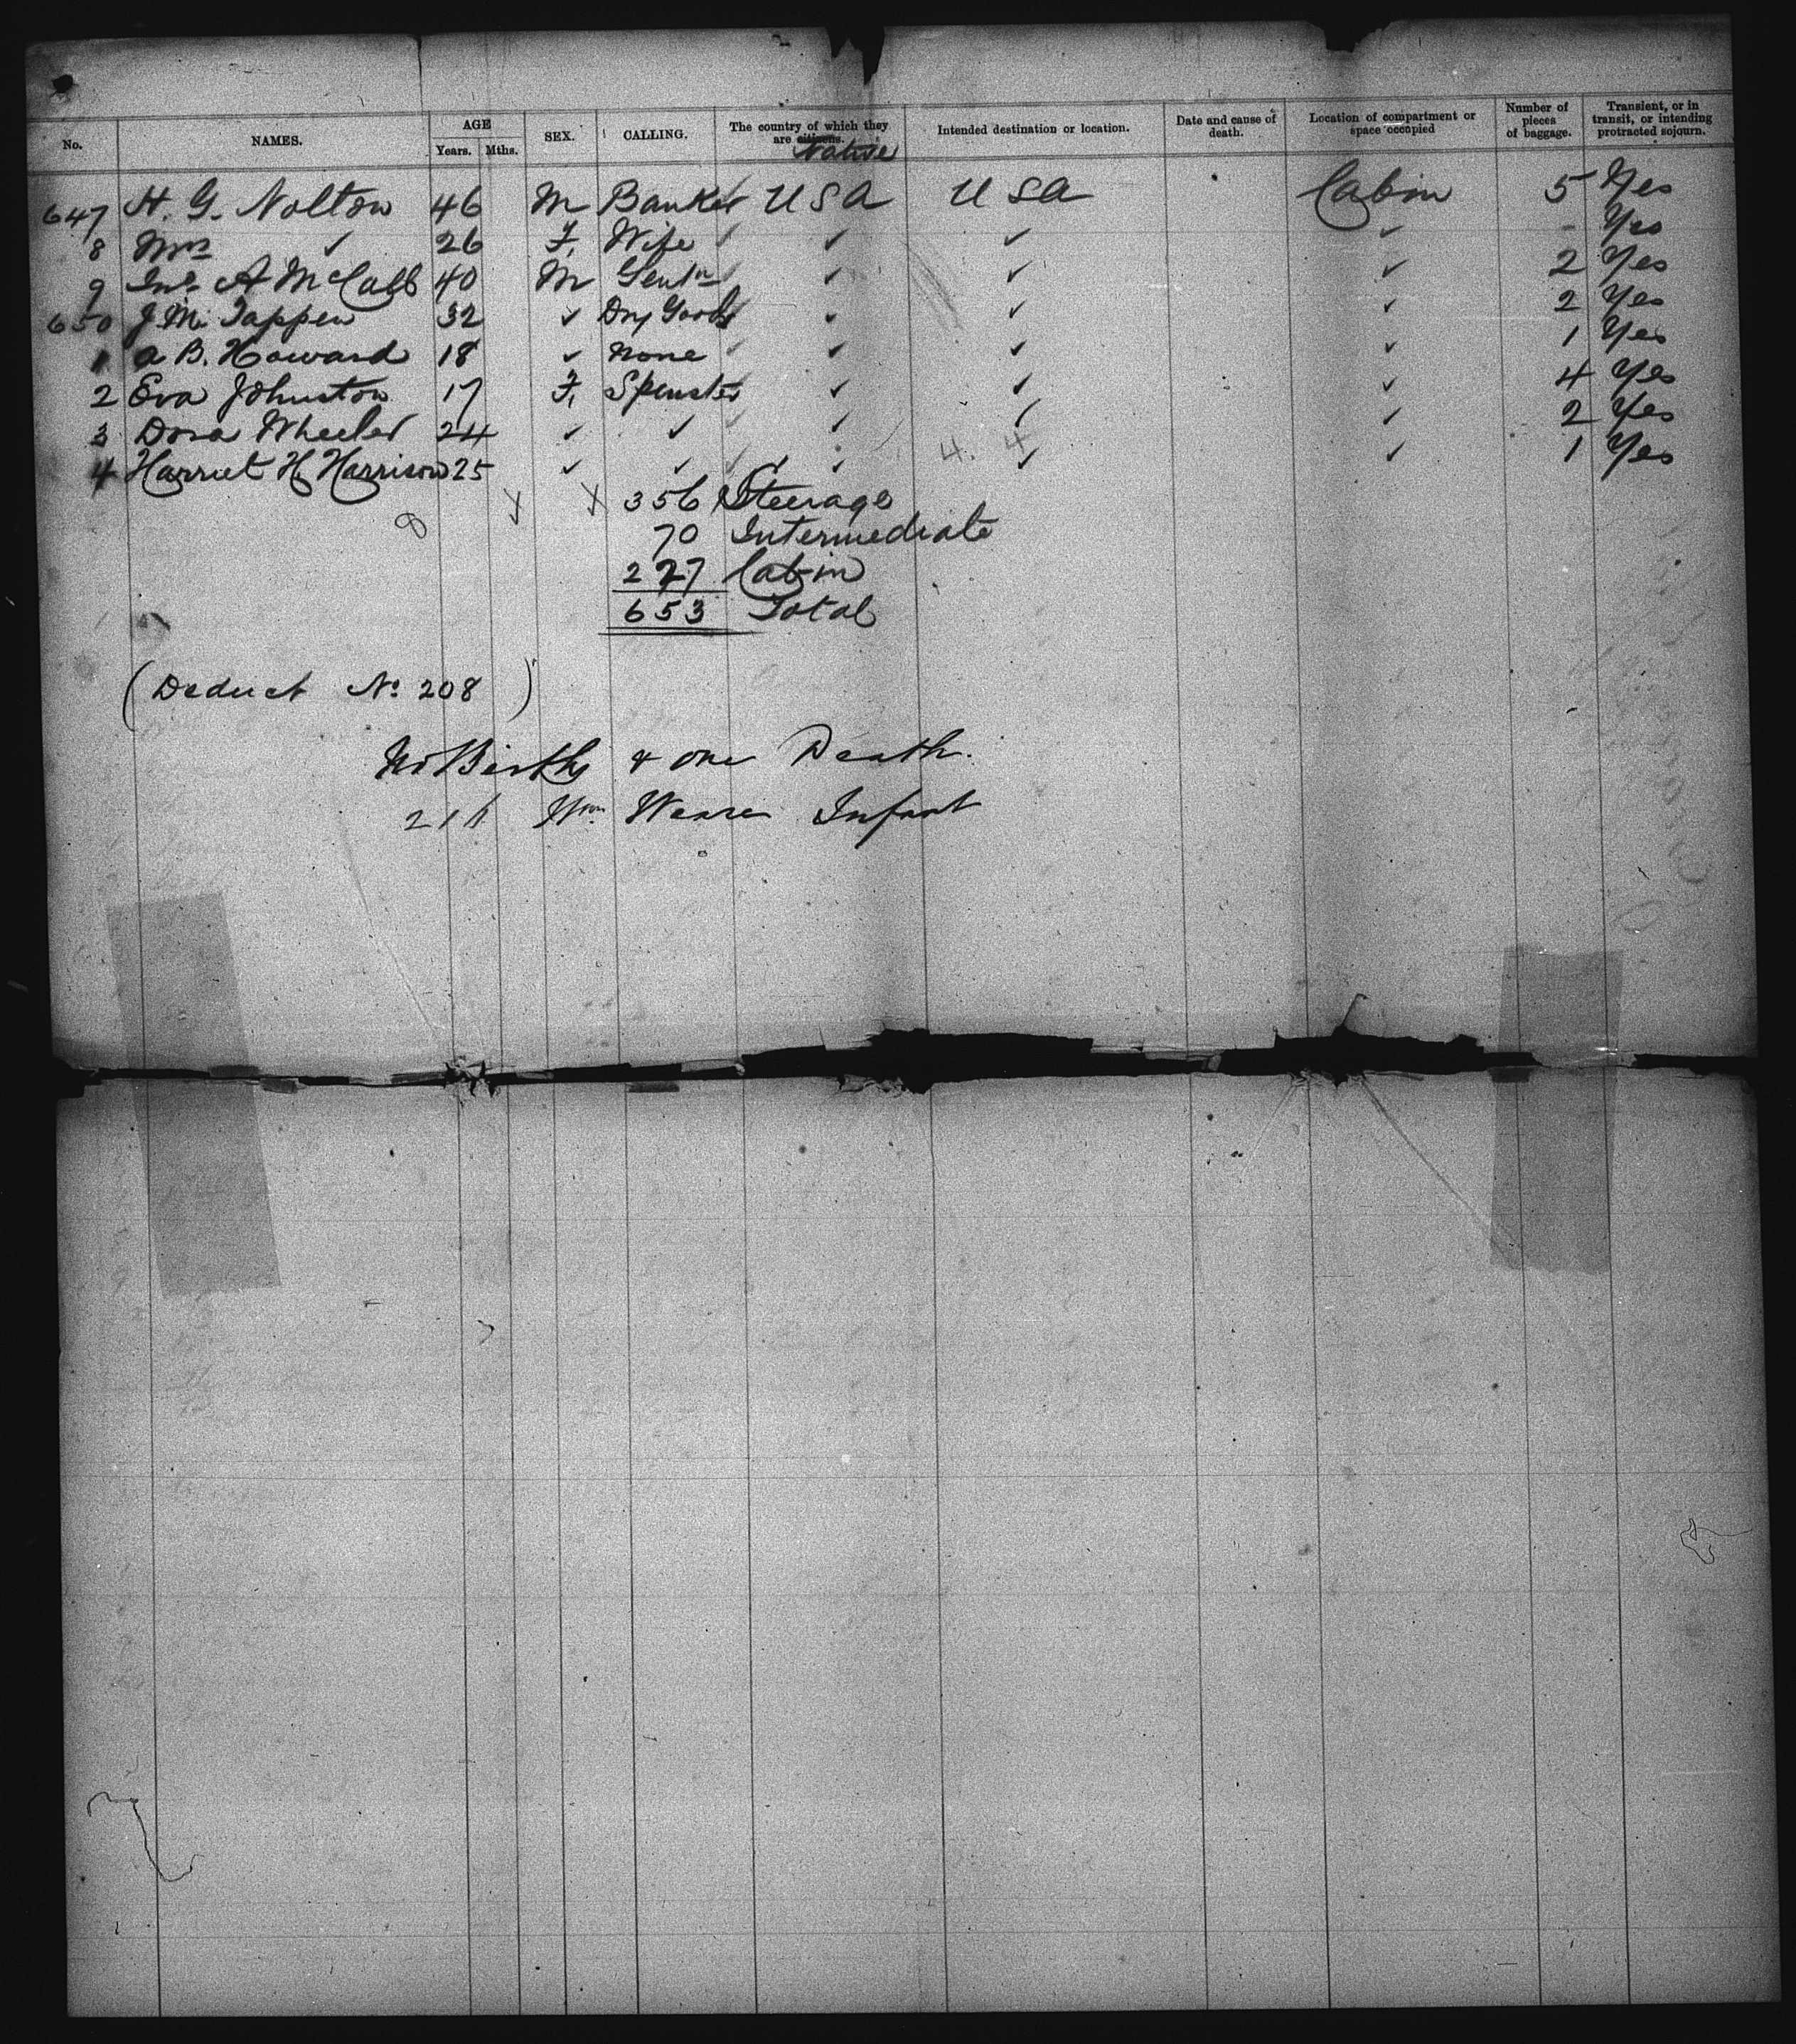 No. NAMES. AGE Years. Mths. SEX. CALLING. The country of which they are citizens. Native Intended destination or location. Date and cause of death. Location of compartment or space occupied Number of pieces of baggage. Transient, or in transit, or intending protracted sojourn.
647 H. G. Nolton 46 M Banker USA USA Cabin 5 Yes
8 Mrs ✓ 26 F. Wife ✓ ✓ ✓ - Yes
9 Jno. A McCall 40 M Gentn ✓ ✓ ✓ 2 Yes
650 J. M. Tappen 32 ✓ Dry Goods ✓ ✓ ✓ 2 Yes
1 A B. Howard 18 ✓ None ✓ ✓ ✓ 1 Yes
2 Eva Johnston 17 F, Spinster ✓ ✓ ✓ 4 Yes
3 Dora Wheeler 24 ✓ ✓ ✓ ✓ ✓ 2 Yes
4 Harriet H. Harrison 25 ✓ ✓ ✓ ✓ ✓ 1 Yes
356 Steerage
70 Intermediate
227 Cabin
653 Total
(Deduct No. 208)
No Births & one Death.
Wm. Infant